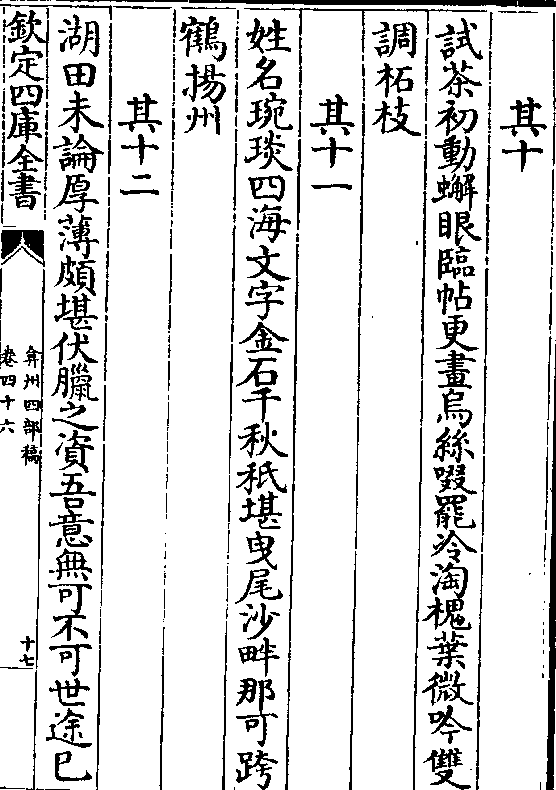 其十
試茶初動蠏眼臨帖更畫烏絲啜罷冷淘槐葉微吟雙
調柘枝
其十一
姓名琬琰四海文字金石千秋秖堪曳尾沙畔那可跨
鶴揚州
其十二
湖田未論厚薄頗堪伏臘之資吾意無可不可世途已
欽定四庫全書
弇州四部稿
卷四十六
十七